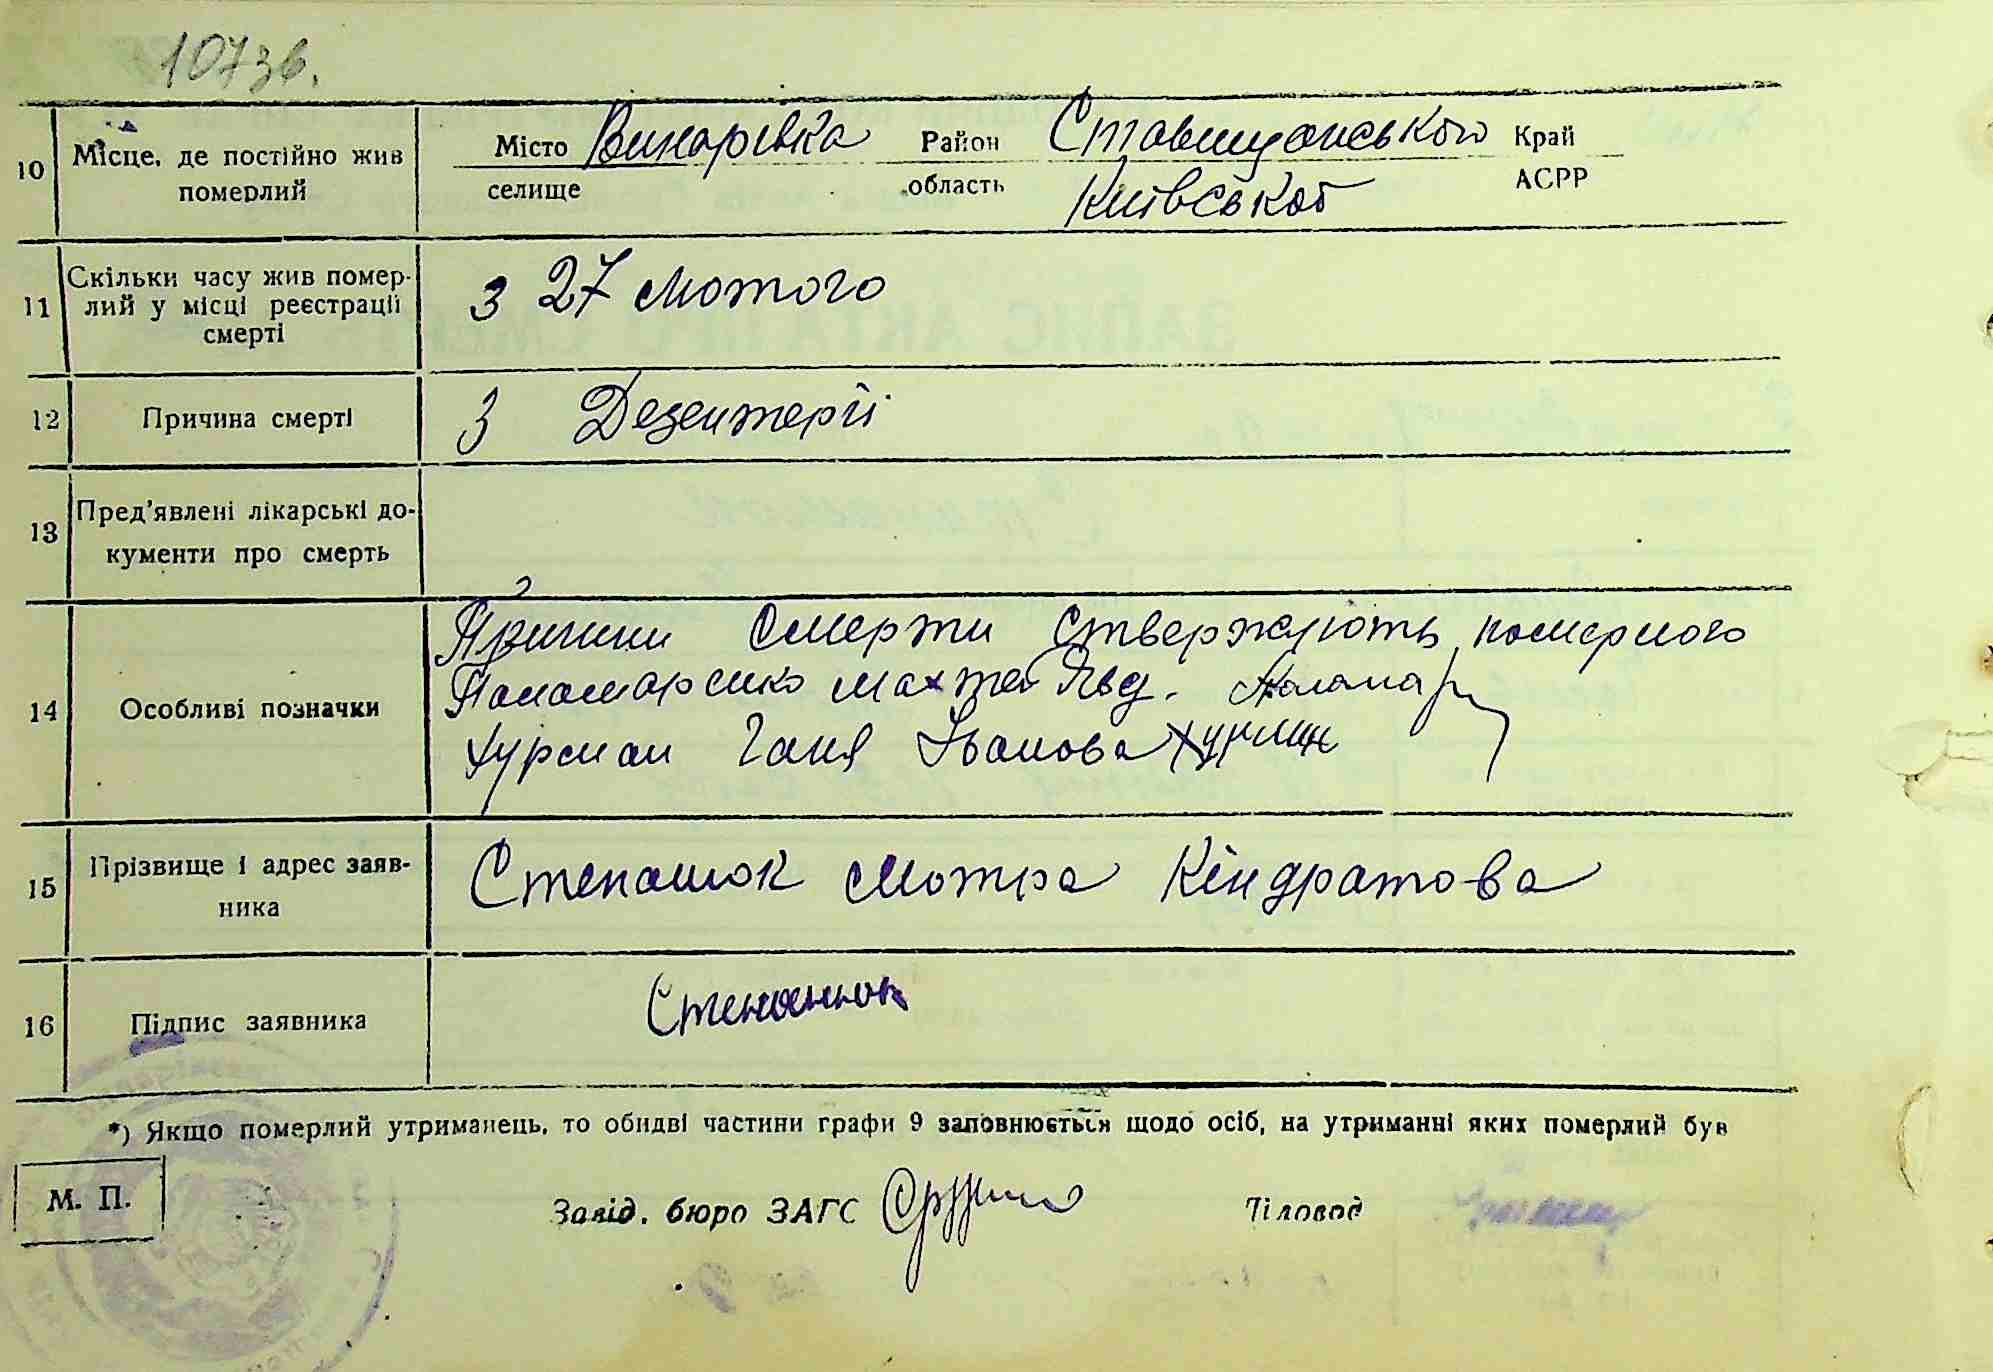 107зв.
10 Місце, де постійно жив померлий
Місто селище Винарівка Район область Ставищанського Київської Край АСРР
11 Скільки часу жив померлий у місці реєстрації смерті
з 27 лютого
12 Причина смерті
З Дезентерії
13 Пред'явлені лікарські документи про смерть
14 Особливі позначки
Причини смерти ствержують померлого
Паламаренко Махтей Явд. Паламар
Хурсман Ганя Іванова
15 Прізвище і адрес заявника
Степанюк Мотра Кіндратова
16 Підпис заявника
Степанюк
*) Якщо померлий утриманець, то обидві частини графи 9 заповнюється щодо осіб, на утриманні яких померлий був
М. П.
Завід. бюро ЗАГС
Діловод